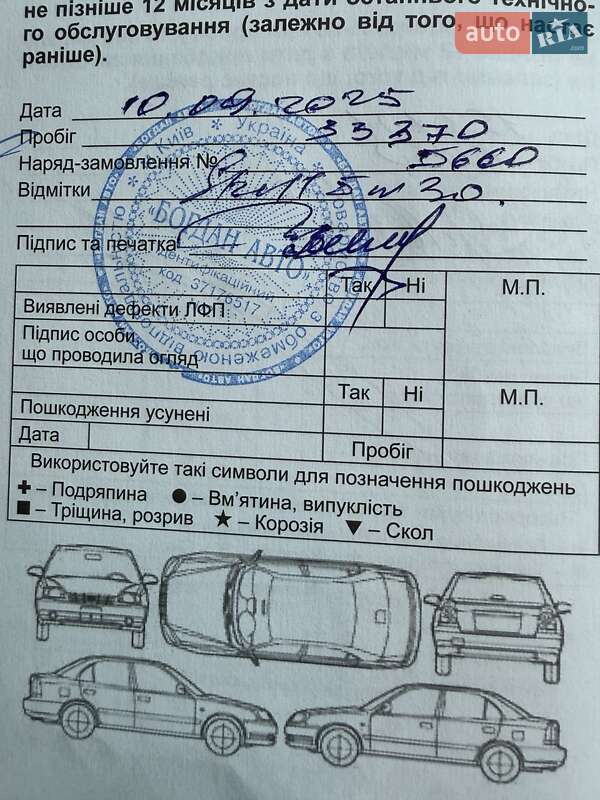 не пізніше 12 місяців з дати останнього технічно-
го обслуговування (залежно від того, що настає
раніше).
autoRIA.com
Дата 10.09.2025
Пробіг 33370
Наряд-замовлення № 5660
Відмітки 5w30.
Підпис та печатка
Україна * Київ
«БОГДАН АВТО»
ідентифікаційний
код 37176517
з обмеженою відповідальністю
Так Ні М.П.
Виявлені дефекти ЛФП
Підпис особи
що проводила огляд
Так Ні М.П.
Пошкодження усунені
Дата Пробіг
Використовуйте такі символи для позначення пошкоджень
✚ – Подряпина ● – Вм'ятина, випуклість
■ – Тріщина, розрив ★ – Корозія ▼ – Скол